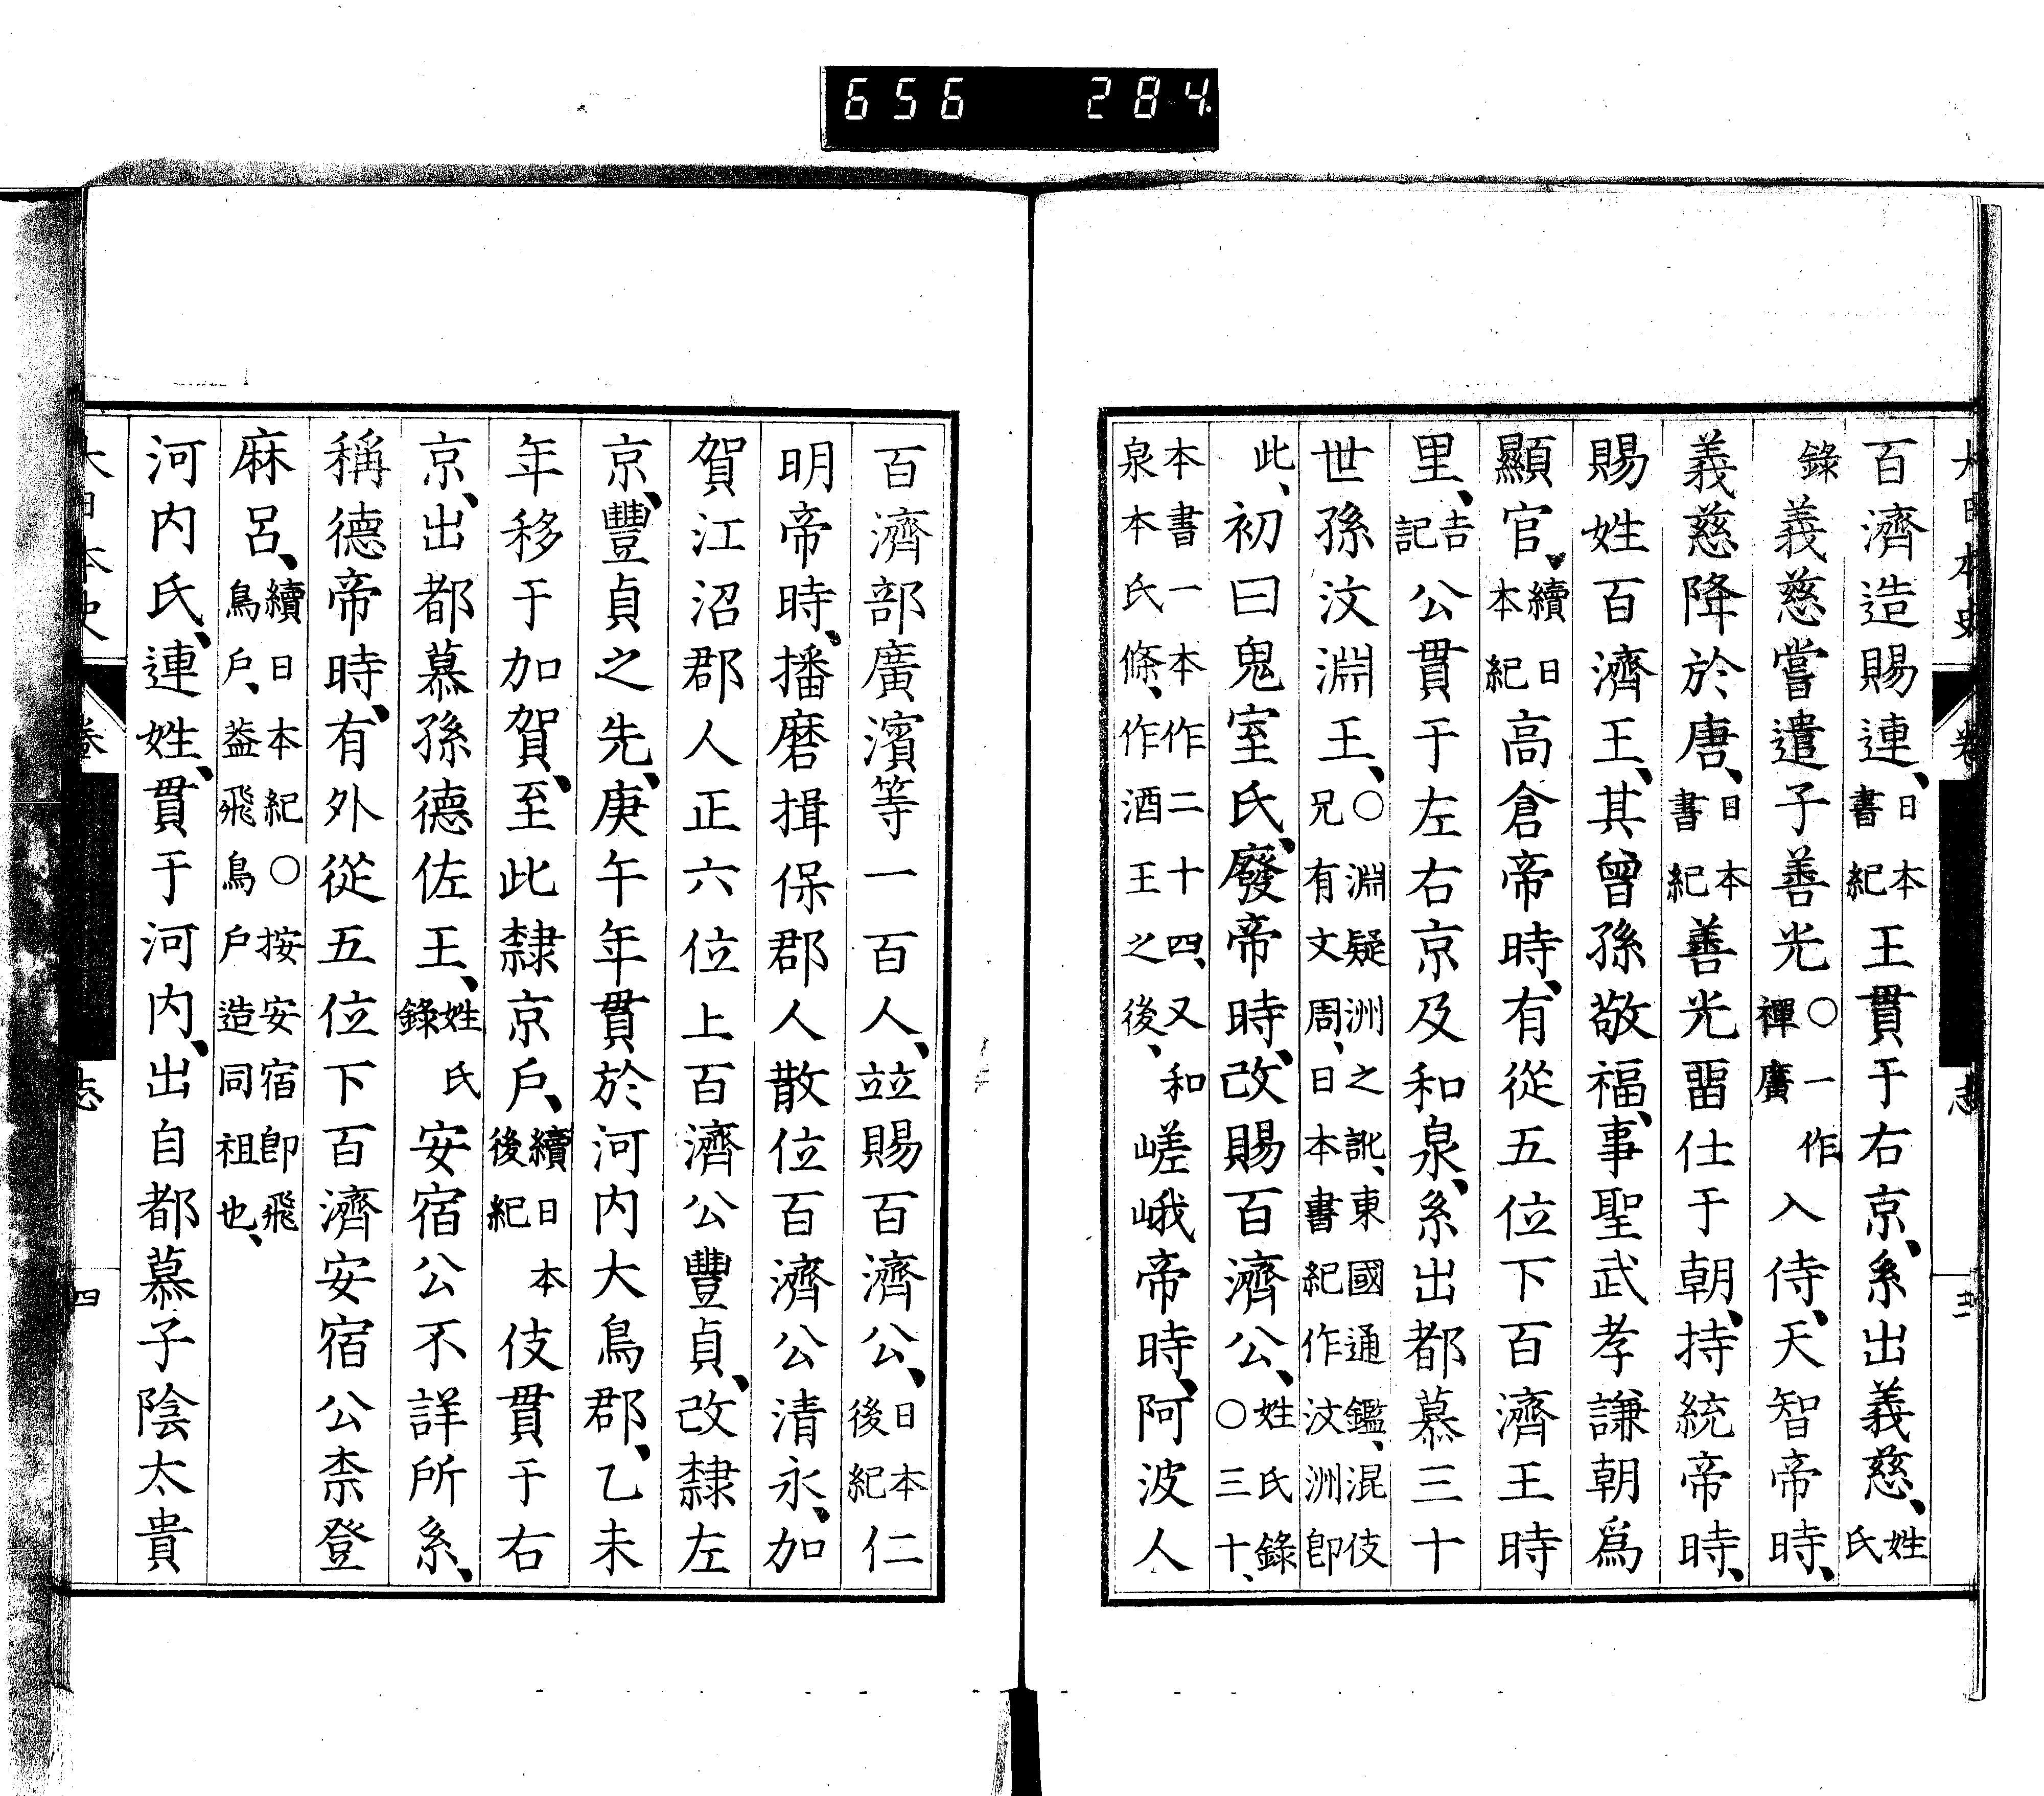 656 284
百濟造賜連、日本書紀王貫于右京、系出義慈、姓氏
錄義慈嘗遣子善光〇一作禪廣入侍、天智帝時、
義慈降於唐、日本書紀善光畱仕于朝、持統帝時、
賜姓百濟王、其曾孫敬福、事聖武孝謙朝爲
顯官、續日本紀高倉帝時、有從五位下百濟王時
里、吉記公貫于左右京及和泉、系出都慕三十
世孫汶淵王、〇淵疑洲之訛、東國通鑑、混伎兄有文周、日本書紀作汶洲卽
此、初曰鬼室氏、廢帝時、改賜百濟公、姓氏錄〇三十、
本書一本作二十四、又和泉本氏條、作酒王之後、嵯峨帝時、阿波人
百濟部廣濱等一百人、竝賜百濟公、日本後紀仁
明帝時、播磨揖保郡人散位百濟公清永、加
賀江沼郡人正六位上百濟公豐貞、改隸左
京、豐貞之先、庚午年貫於河内大鳥郡、乙未
年移于加賀、至此隸京戶、續日本後紀伎貫于右
京、出都慕孫德佐王、姓氏錄安宿公不詳所系、
稱德帝時、有外從五位下百濟安宿公柰登
麻呂、續日本紀〇按安宿卽飛鳥戶、葢飛鳥戶造同祖也、
河内氏、連姓、貫于河内、出自都慕子陰太貴
大日本史 卷 志 四